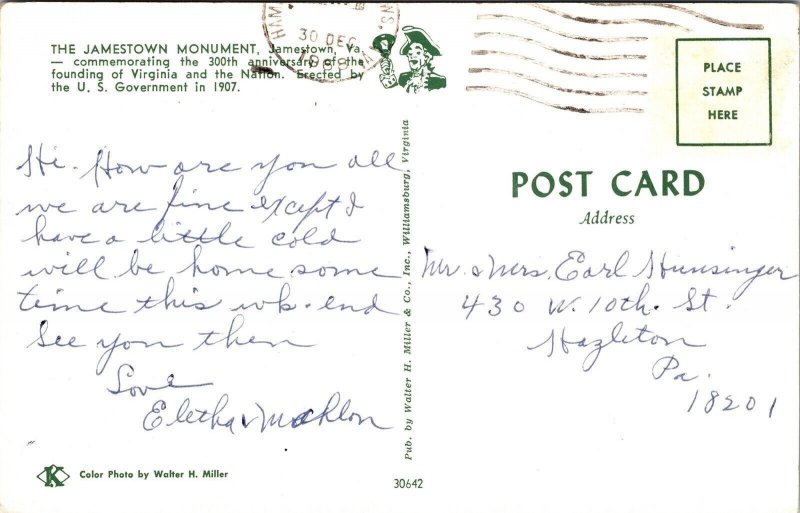 THE JAMESTOWN MONUMENT, Jamestown, Va.
— commemorating the 300th anniversary of the
founding of Virginia and the Nation. Erected by
the U. S. Government in 1907.
30 DEC
PLACE
STAMP
HERE
POST CARD
Address
Hi. How are you all
we are fine except I
have a little cold
will be home some
time this wk-end
See you then
Love
Eletha & Mahlon
Mr. & Mrs. Earl Hunsinger
430 W. 10th. St.
Hazleton
Pa.
18201
Pub. by Walter H. Miller & Co., Inc., Williamsburg, Virginia
K
Color Photo by Walter H. Miller
30642